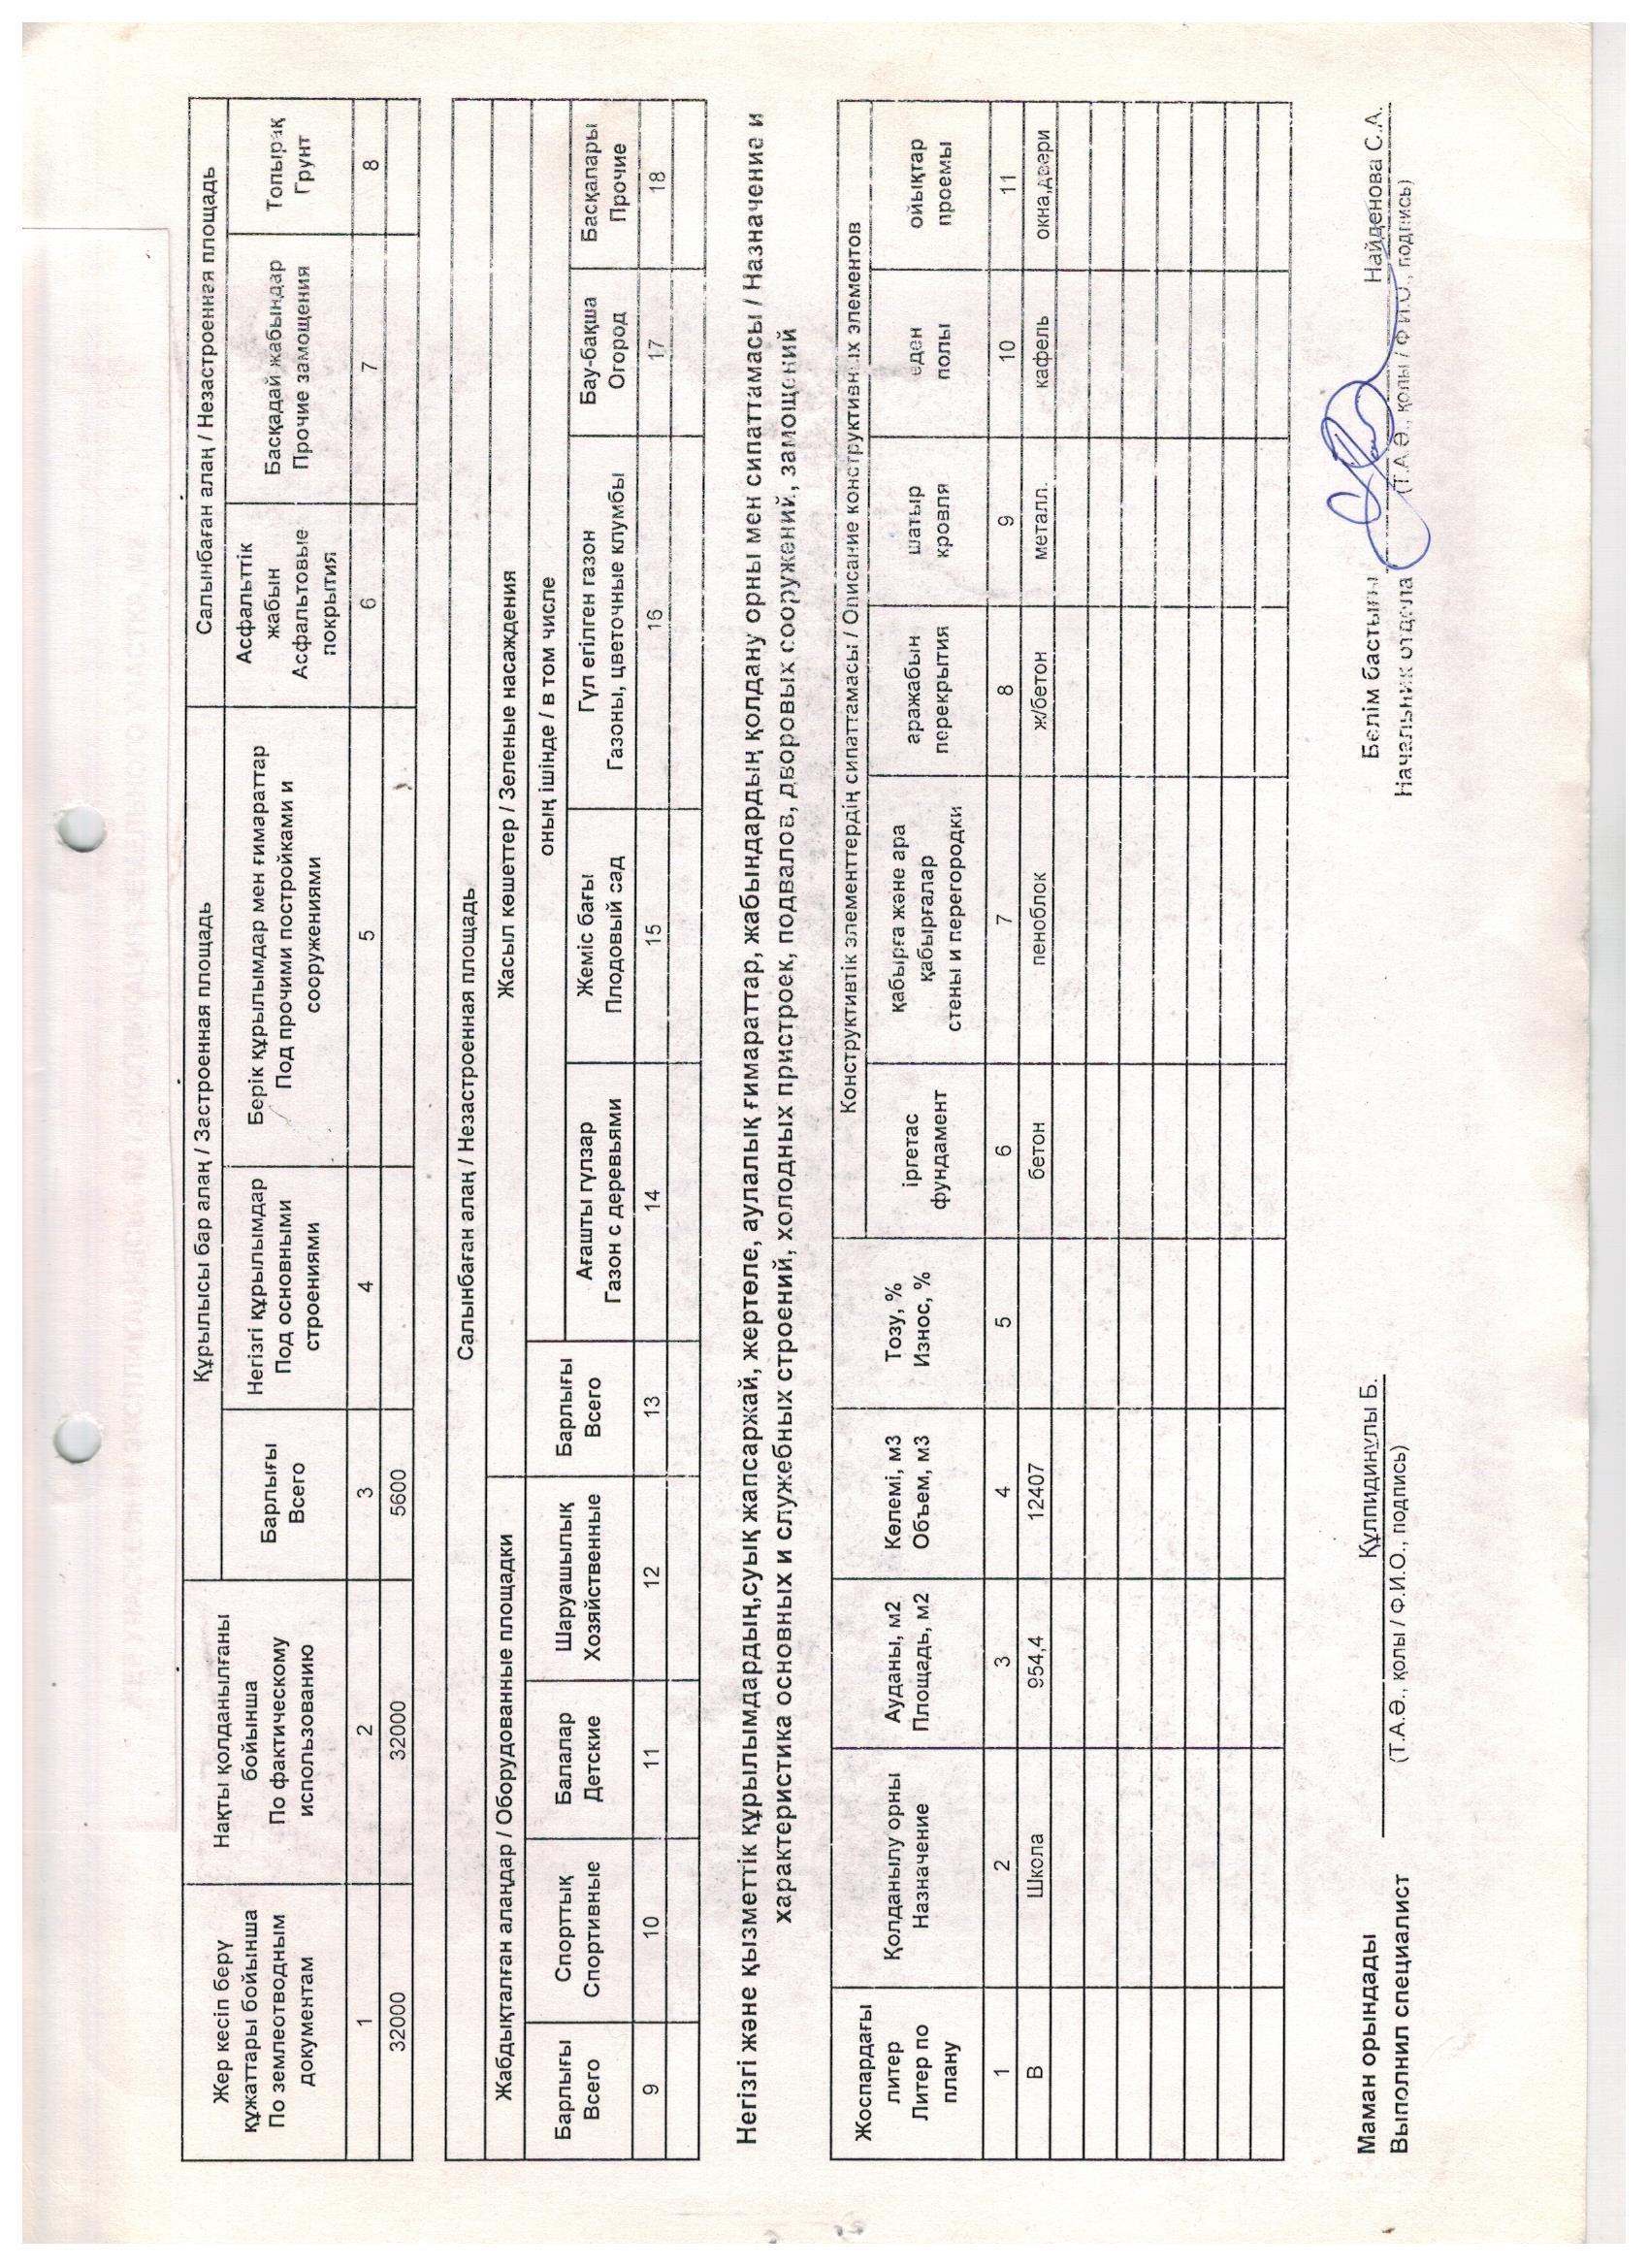 Жер кесіп беру құжаттары бойынша
По землеотводным документам
Нақты қолданылғаны бойынша
По фактическому использованию
Құрылысы бар алаң / Застроенная площадь
Салынбаған алаң / Незастроенная площадь
Барлығы
Всего
Негізгі құрылымдар
Под основными
строениями
Берік құрылымдар мен ғимараттар
Под прочими постройками и
сооружениями
Асфальттік
жабын
Асфальтовые
покрытия
Басқадай жабындар
Прочие замощения
Топырақ
Грунт
1 2 3 4 5 6 7 8
32000 32000 5600
Салынбаған алаң / Незастроенная площадь
Жабдықталған алаңдар / Оборудованные площадки
Жасыл көшеттер / Зеленые насаждения
оның ішінде / в том числе
Барлығы
Всего
Спорттық
Спортивные
Балалар
Детские
Шаруашылық
Хозяйственные
Барлығы
Всего
Ағашты гүлзар
Газон с деревьями
Жеміс бағы
Плодовый сад
Гүл егілген газон
Газоны, цветочные клумбы
Бау-бақша
Огород
Басқалары
Прочие
9 10 11 12 13 14 15 16 17 18
Негізгі және қызметтік құрылымдардың,суық жапсаржай, жертөле, аулалық ғимараттар, жабындардың қолдану орны мен сипаттамасы / Назначение и
характеристика основных и служебных строений, холодных пристроек, подвалов, дворовых сооружений, замощений
Жоспардағы
литер
Литер по
плану
Қолданылу орны
Назначение
Ауданы, м2
Площадь, м2
Көлемі, м3
Объем, м3
Тозу, %
Износ, %
Конструктивтік элементтердің сипаттамасы / Описание конструктивных элементов
іргетас
фундамент
қабырға және ара
қабырғалар
стены и перегородки
аражабын
перекрытия
шатыр
кровля
еден
полы
ойықтар
проемы
1 2 3 4 5 6 7 8 9 10 11
В Школа 954,4 12407 бетон пеноблок ж/бетон металл. кафель окна,двери
Маман орындады Құлпидинұлы Б.
Выполнил специалист (Т.А.Ә., қолы / Ф.И.О., подпись)
Бөлім бастығы Найденова С.А.
Начальник отдела (Т.А.Ә., қолы / Ф.И.О., подпись)